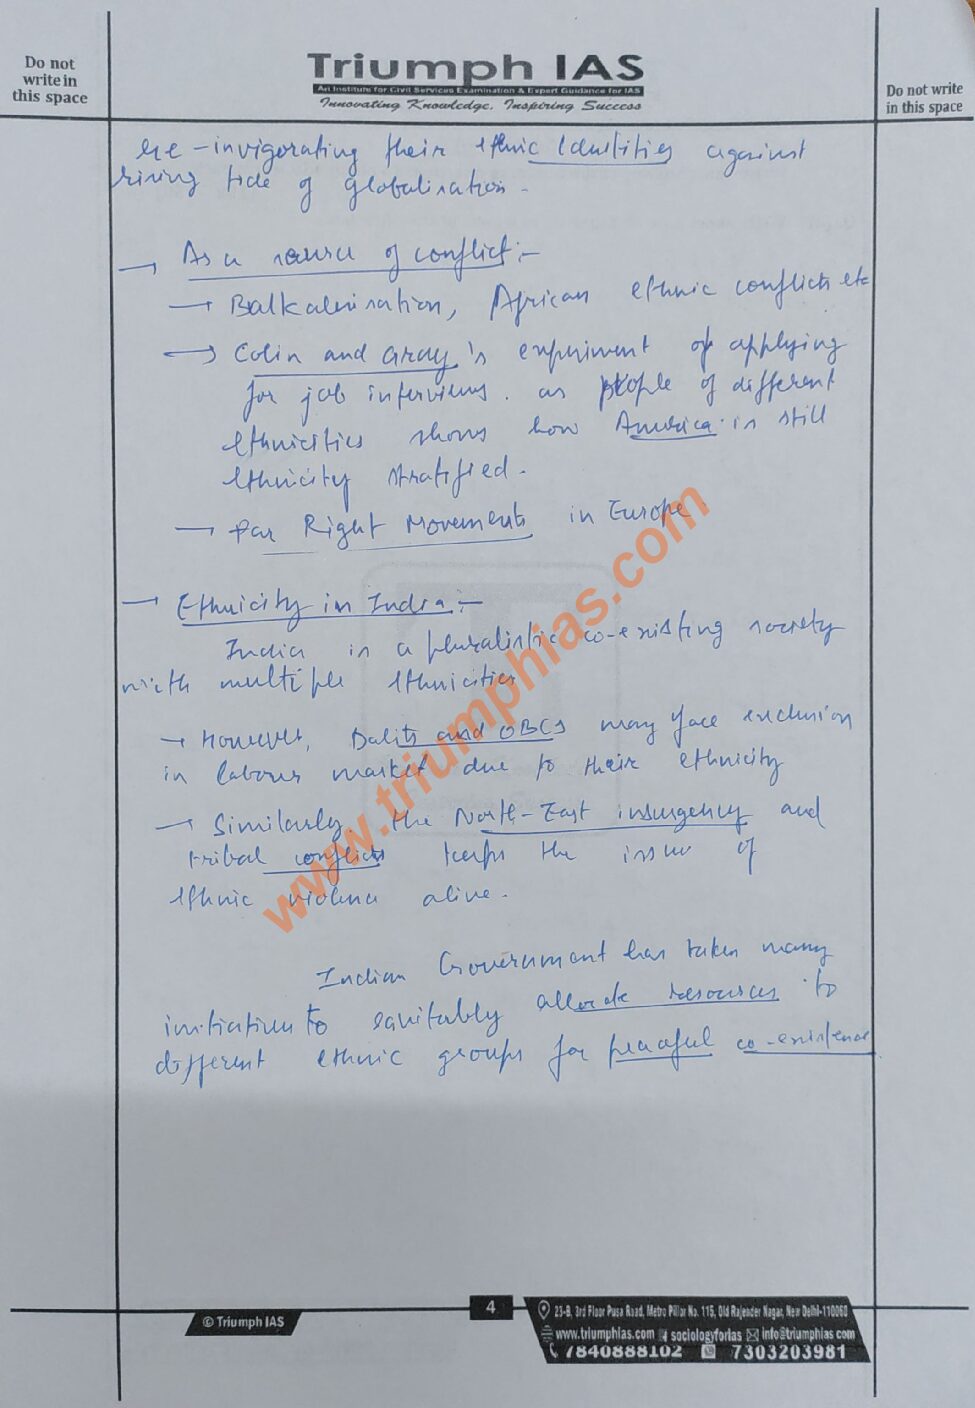 Do not
write in
this space
Triumph IAS
An Institute for Civil Services Examination & Expert Guidance for IAS
Innovating Knowledge, Inspiring Success
Do not write
in this space
re-invigorating their ethnic Identities against
rising tide of globalisation.
→ As a source of conflict:-
→ Balkanisation, African ethnic conflicts etc
→ Colin and Gray's experiment of applying
for job interviews. as people of different
ethnicities shows how America is still
ethnicity stratified.
→ Far Right Movements in Europe.
→ Ethnicity in India:-
India is a pluralistic co-existing society
with multiple ethnicities
→ However, Dalits and OBCs may face exclusion
in labour market due to their ethnicity
→ Similarly, the North-East insurgency and
tribal conflicts keeps the issue of
ethnic violence alive.
Indian Government has taken many
initiatives to equitably allocate resources to
different ethnic groups for peaceful co-existence
www.triumphias.com
4
© Triumph IAS
23-B, 3rd Floor Pusa Road, Metro Pillar No. 115, Old Rajender Nagar, New Delhi-110060
www.triumphias.com sociologyforias info@triumphias.com
7840888102 7303203981